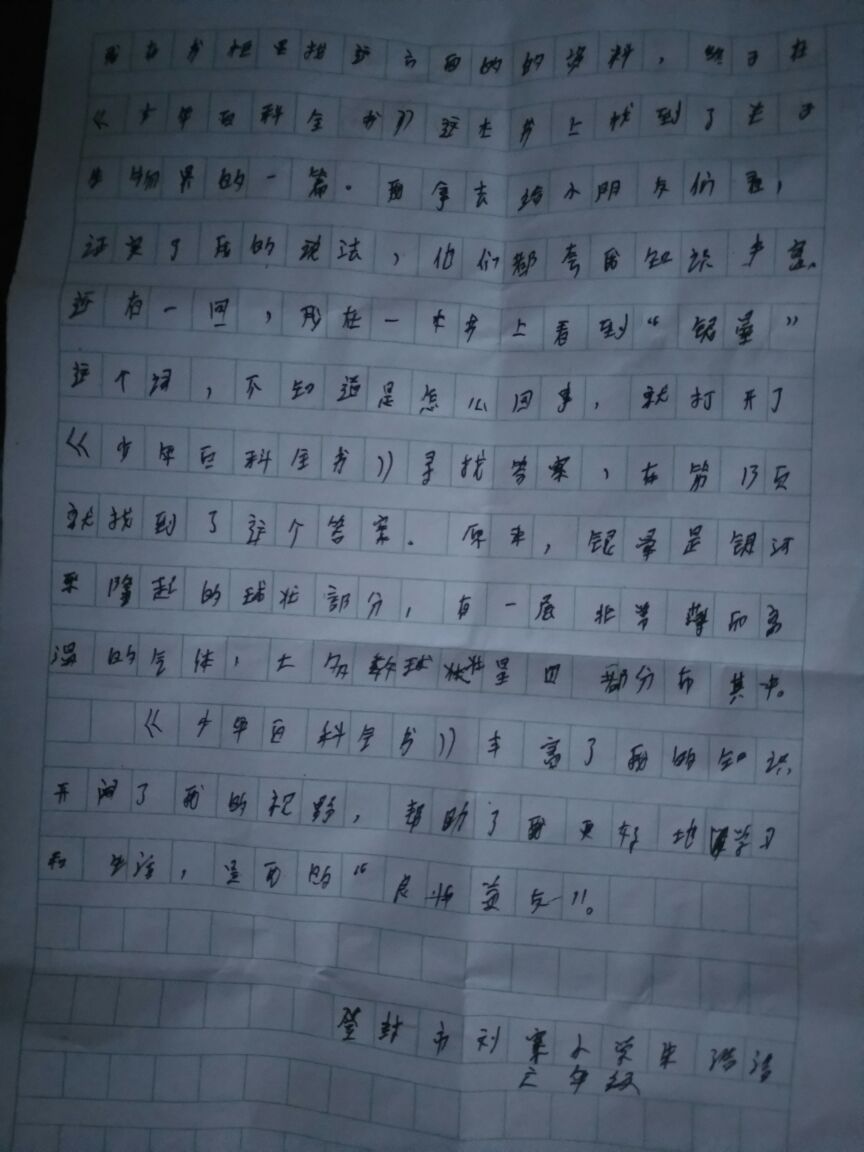 我在书柜里找这方面的的资料，终于在
《少年百科全书》这本书上找到了关于
生物界的一篇。我拿去给小朋友们看，
证实了我的说法，他们都夸我知识丰富。
还有一回，我在一本书上看到“银晕”
这个词，不知道是怎么回事，就打开了
《少年百科全书》寻找答案，在第13页
就找到了这个答案。原来，银晕是银河
系隆起的球状部分，有一层非常薄的高
温的气体，大多数球状星团都分布其中。
《少年百科全书》丰富了我的知识，
开阔了我的视野，帮助了我更好地学习
和生活，是我的“良师益友”。
登封市刘寨小学 浩洁
六年级